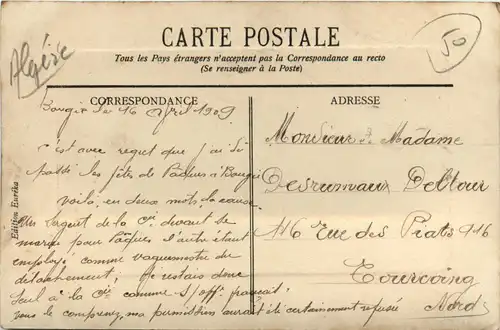 Algérie
CARTE POSTALE
50
Tous les Pays étrangers n'acceptent pas la Correspondance au recto
(Se renseigner à la Poste)
CORRESPONDANCE
ADRESSE
Bougie le 16 Avril 1909
c'est avec regret que j'ai
passé les fêtes de Pâques à Bougie
voilà, en deux mots la cause
Un sergent de la Cie devant se
marier pour Pâques l'autre étant
employé comme vaguemestre du
détachement, je restais donc
seul à la Cie comme s/off. français,
vous le comprenez, ma permission aurait été certainement refusée
Monsieur & Madame
Desrumaux Deltour
116 rue des Piats 116
Tourcoing
Nord
Edition Eureka